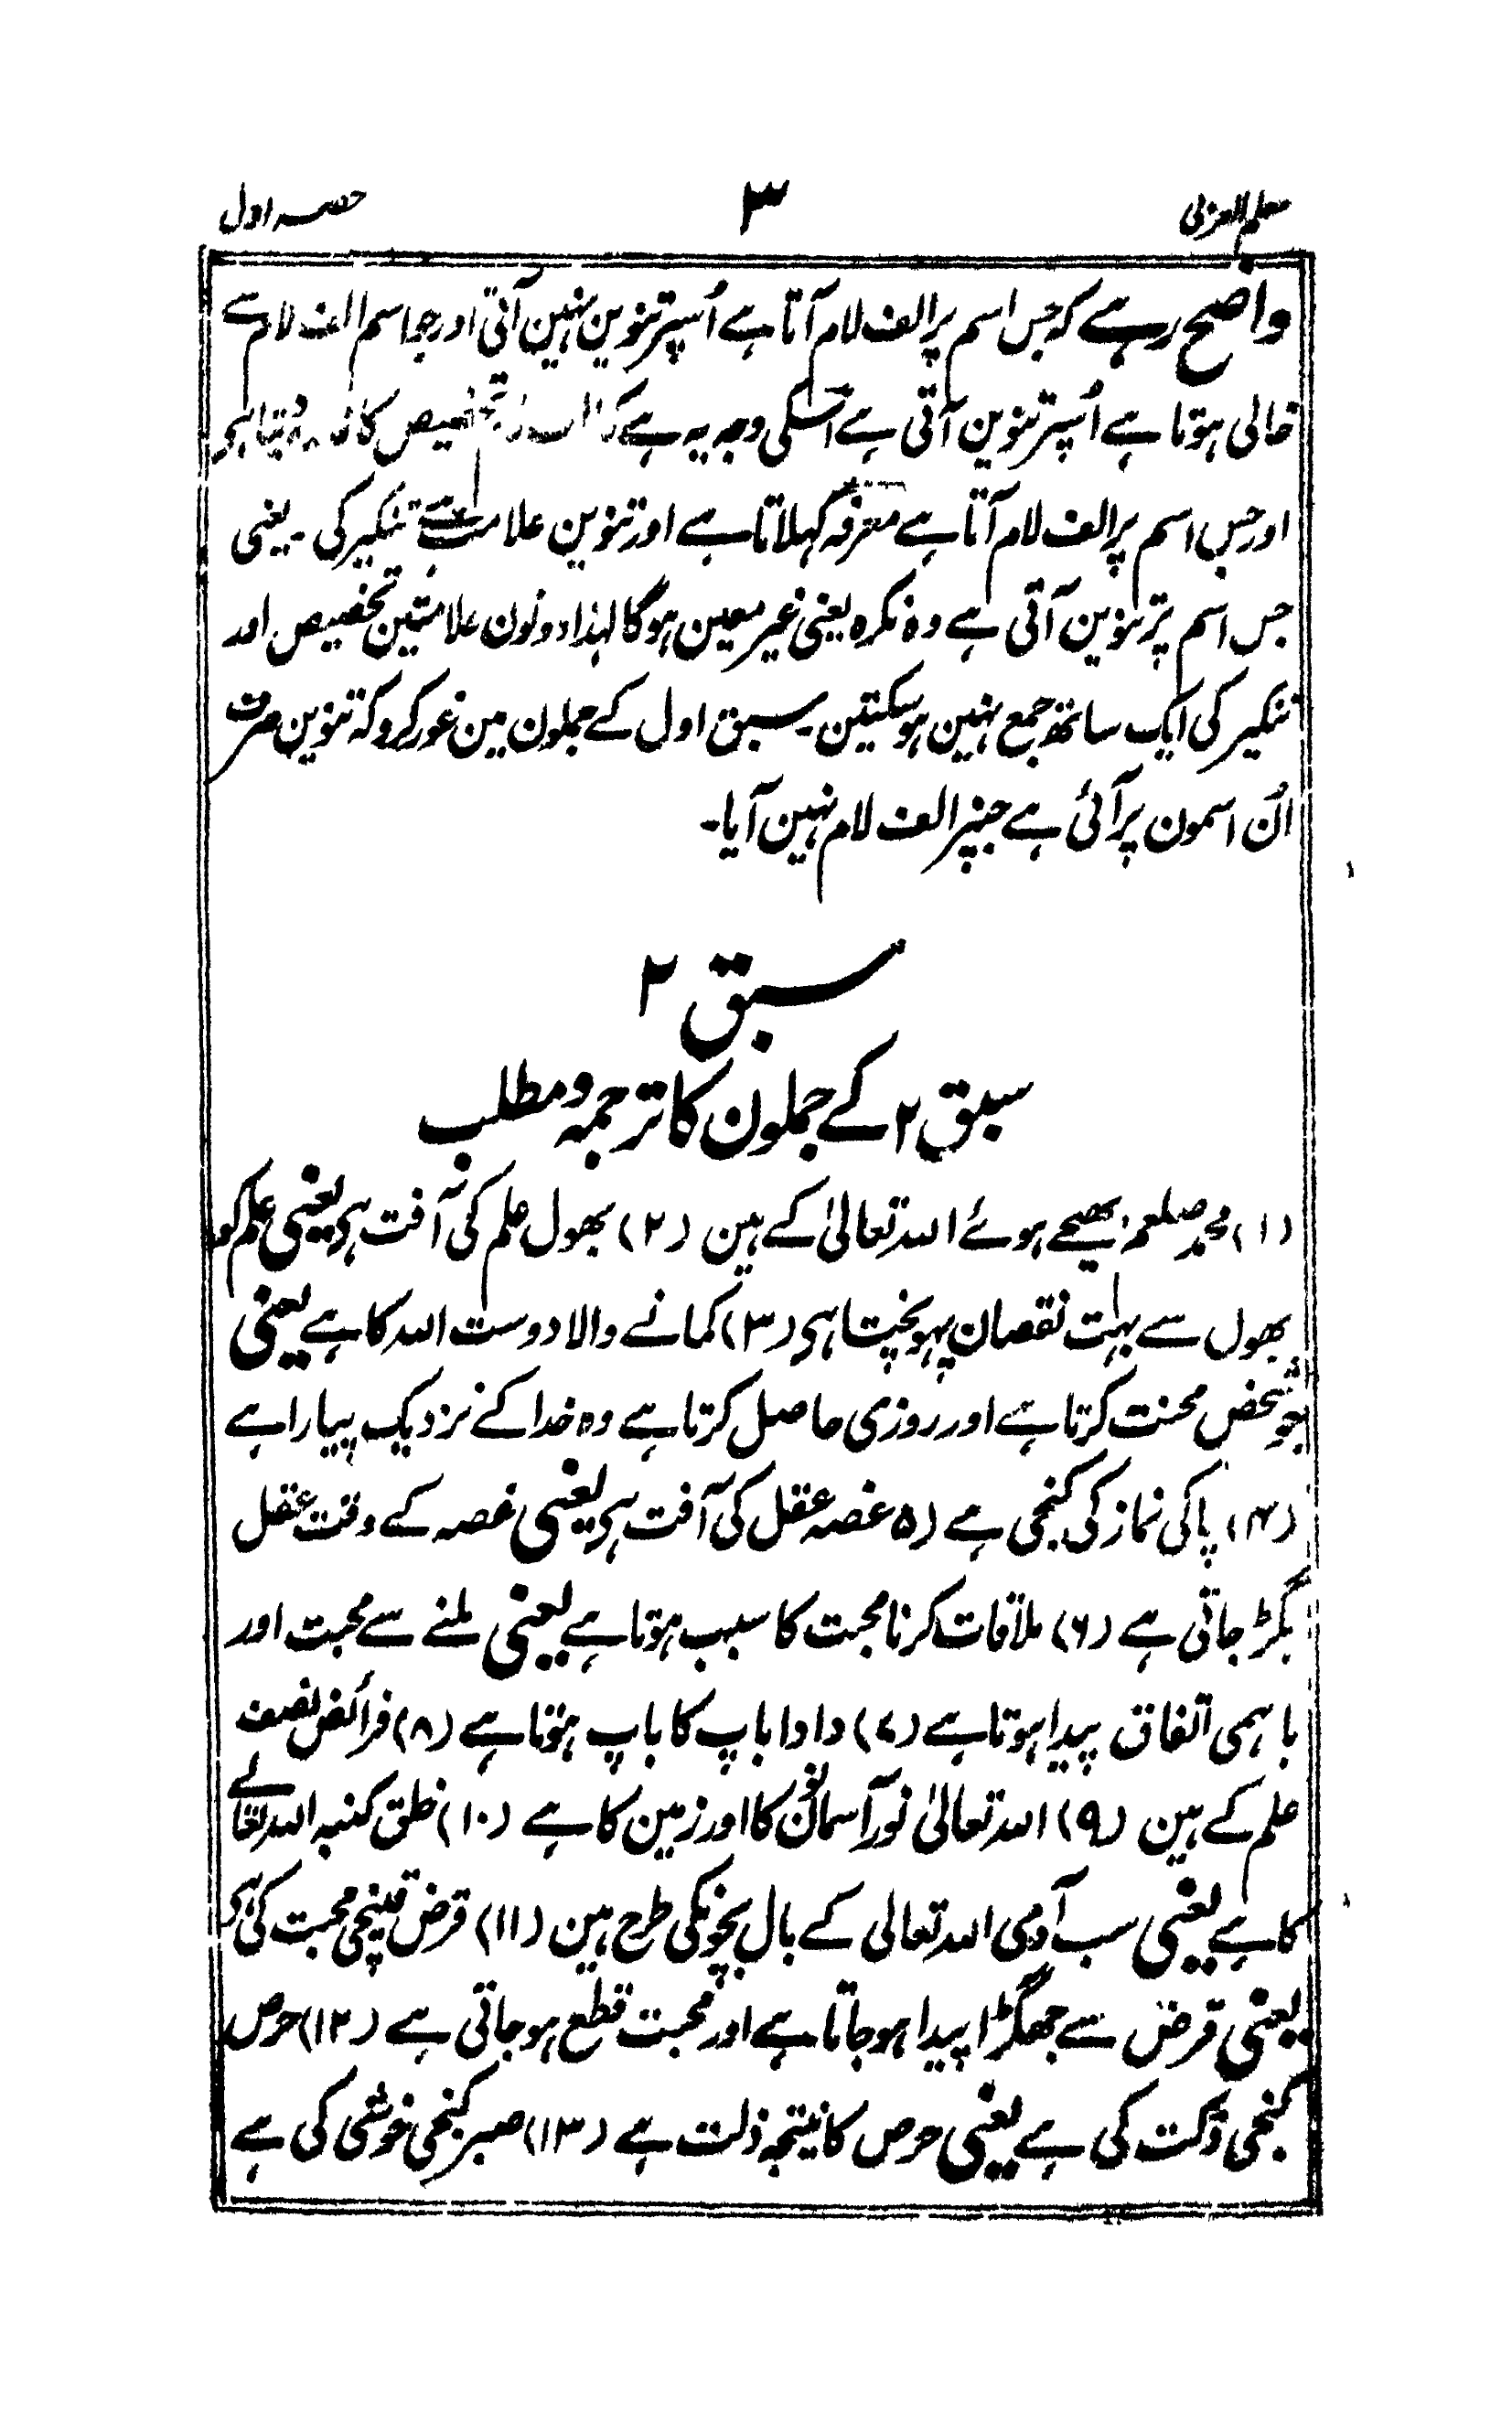 معلم العربی ۳ حصہ اول
واضح رہے کہ جس اسم پر الف لام آتا ہے اُسپر تنوین نہین آتی اور جو اسم الف لام سے
خالی ہوتا ہے اُسپر تنوین آتی ہے اسکی وجہ یہ ہے کہ تخصیص کا دیتا ہی
اور جس اسم پر الف لام آتا ہے معرفہ کہلاتا ہے اور تنوین علامت ہے تنکیر کی۔ یعنی
جس اسم پر تنوین آتی ہے وہ نکرہ یعنی غیر معین ہوگا لہذا دونون علامتین تخصیص اور
تنکیر کی ایک ساتھ جمع نہین ہوسکتین۔ سبق اول کے جملون مین غور کرو کہ تنوین صرف
اُن اسمون پر آئی ہے جنپر الف لام نہین آیا۔
سبق ۲
سبق ۲ کے جملون کا ترجمہ و مطلب
(۱) محمد صلعم بھیجے ہوئے اللہ تعالیٰ کے ہین (۲) بھول علم کی آفت ہی یعنی علم کو
بھول سے بہت نقصان پہونچتا ہی (۳) کمانے والا دوست اللہ کا ہے یعنی
جو شخص محنت کرتا ہے اور روزی حاصل کرتا ہے وہ خدا کے نزدیک پیارا ہے
(۴) پاکی نماز کی کنجی ہے (۵ غصہ عقل کی آفت ہی یعنی غصہ کے وقت عقل
بگڑ جاتی ہے (۶) ملاقات کرنا محبت کا سبب ہوتا ہے یعنی ملنے سے محبت اور
باہمی اتفاق پیدا ہوتا ہے (۷) دادا باپ کا باپ ہوتا ہے (۸) فرائض نصف
علم کے ہین (۹) اللہ تعالیٰ نور آسمانون کا اور زمین کا ہے (۱۰) خلق کنبہ اللہ تعالے
کا ہے یعنی سب آدمی اللہ تعالی کے بال بچونکی طرح ہین (۱۱) قرض قینچی محبت کی ہی
یعنی قرض سے جھگڑا پیدا ہو جاتا ہے اور محبت قطع ہو جاتی ہے (۱۲) حرص
کنجی ذلت کی ہے یعنی حرص کا نیتجہ ذلت ہے (۱۳) صبر کنجی خوشی کی ہے